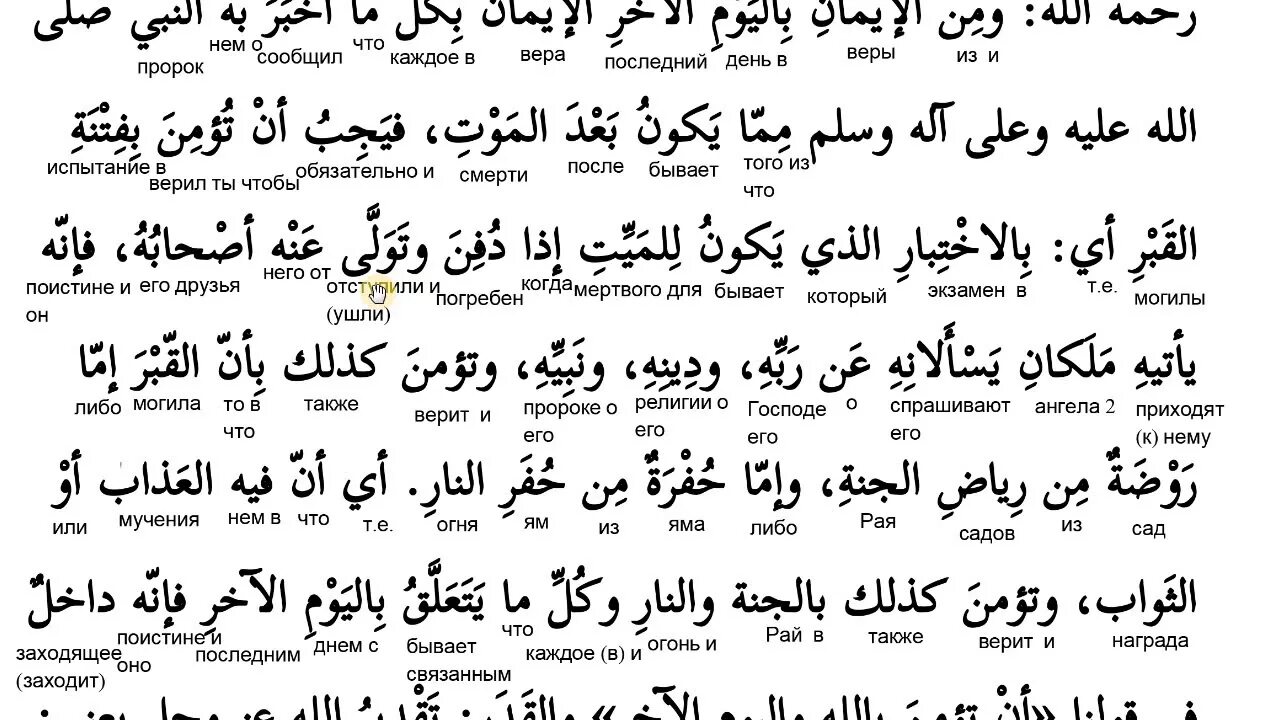 رحمه الله: ومِن الإيمانِ بِاليَوْمِ الآخرِ الإيمانُ بِكلِّ ما أَخْبَرَ به النبي صلى
из и веры день в последний вера каждое в что сообщил нем о пророк
الله عليه وعلى آله وسلم مِمّا يَكونُ بَعْدَ المَوْتِ، فيَجِبُ أنْ تُؤمِنَ بِفِتْنَةِ
того из что бывает после смерти обязательно и верил ты чтобы испытание в
القَبْرِ أي: بِالاخْتِبارِ الذي يَكونُ لِلمَيِّتِ إذا دُفِنَ وتَوَلَّى عَنْه أصْحابُهُ، فإنّه
могилы т.е. экзамен в который бывает мертвого для когда погребен отступили и (ушли) него от его друзья поистине и он
يأتيهِ مَلَكانِ يَسْأَلانِهِ عَن رَبِّهِ، ودِينِهِ، ونَبِيِّهِ، وتؤمنَ كذلك بِأنّ القّبْرَ إمّا
приходят (к) нему ангела 2 спрашивают его о Господе его религии о его пророке о его верит и также то в что могила либо
رَوْضَةٌ مِن رِياضِ الجنةِ، وإمّا حُفْرَةٌ مِن حُفَرِ النارِ. أي أنّ فيه العَذابَ أوْ
сад из садов Рая либо яма из ям огня т.е. что нем в мучения или
الثَواب، وتؤمنَ كذلك بالجنة والنارِ وكُلِّ ما يَتَعَلَّقُ بِاليَوْمِ الآخرِ فإنّه داخلٌ
награда верит и также Рай в огонь и каждое (в) и что бывает связанным днем с последним поистине и оно заходящее (заходит)
في قولنا «أنْ تؤمنَ بالله واليوم الآخر» والقَدَر: تَقْديرُ الله عز وجل يعني: